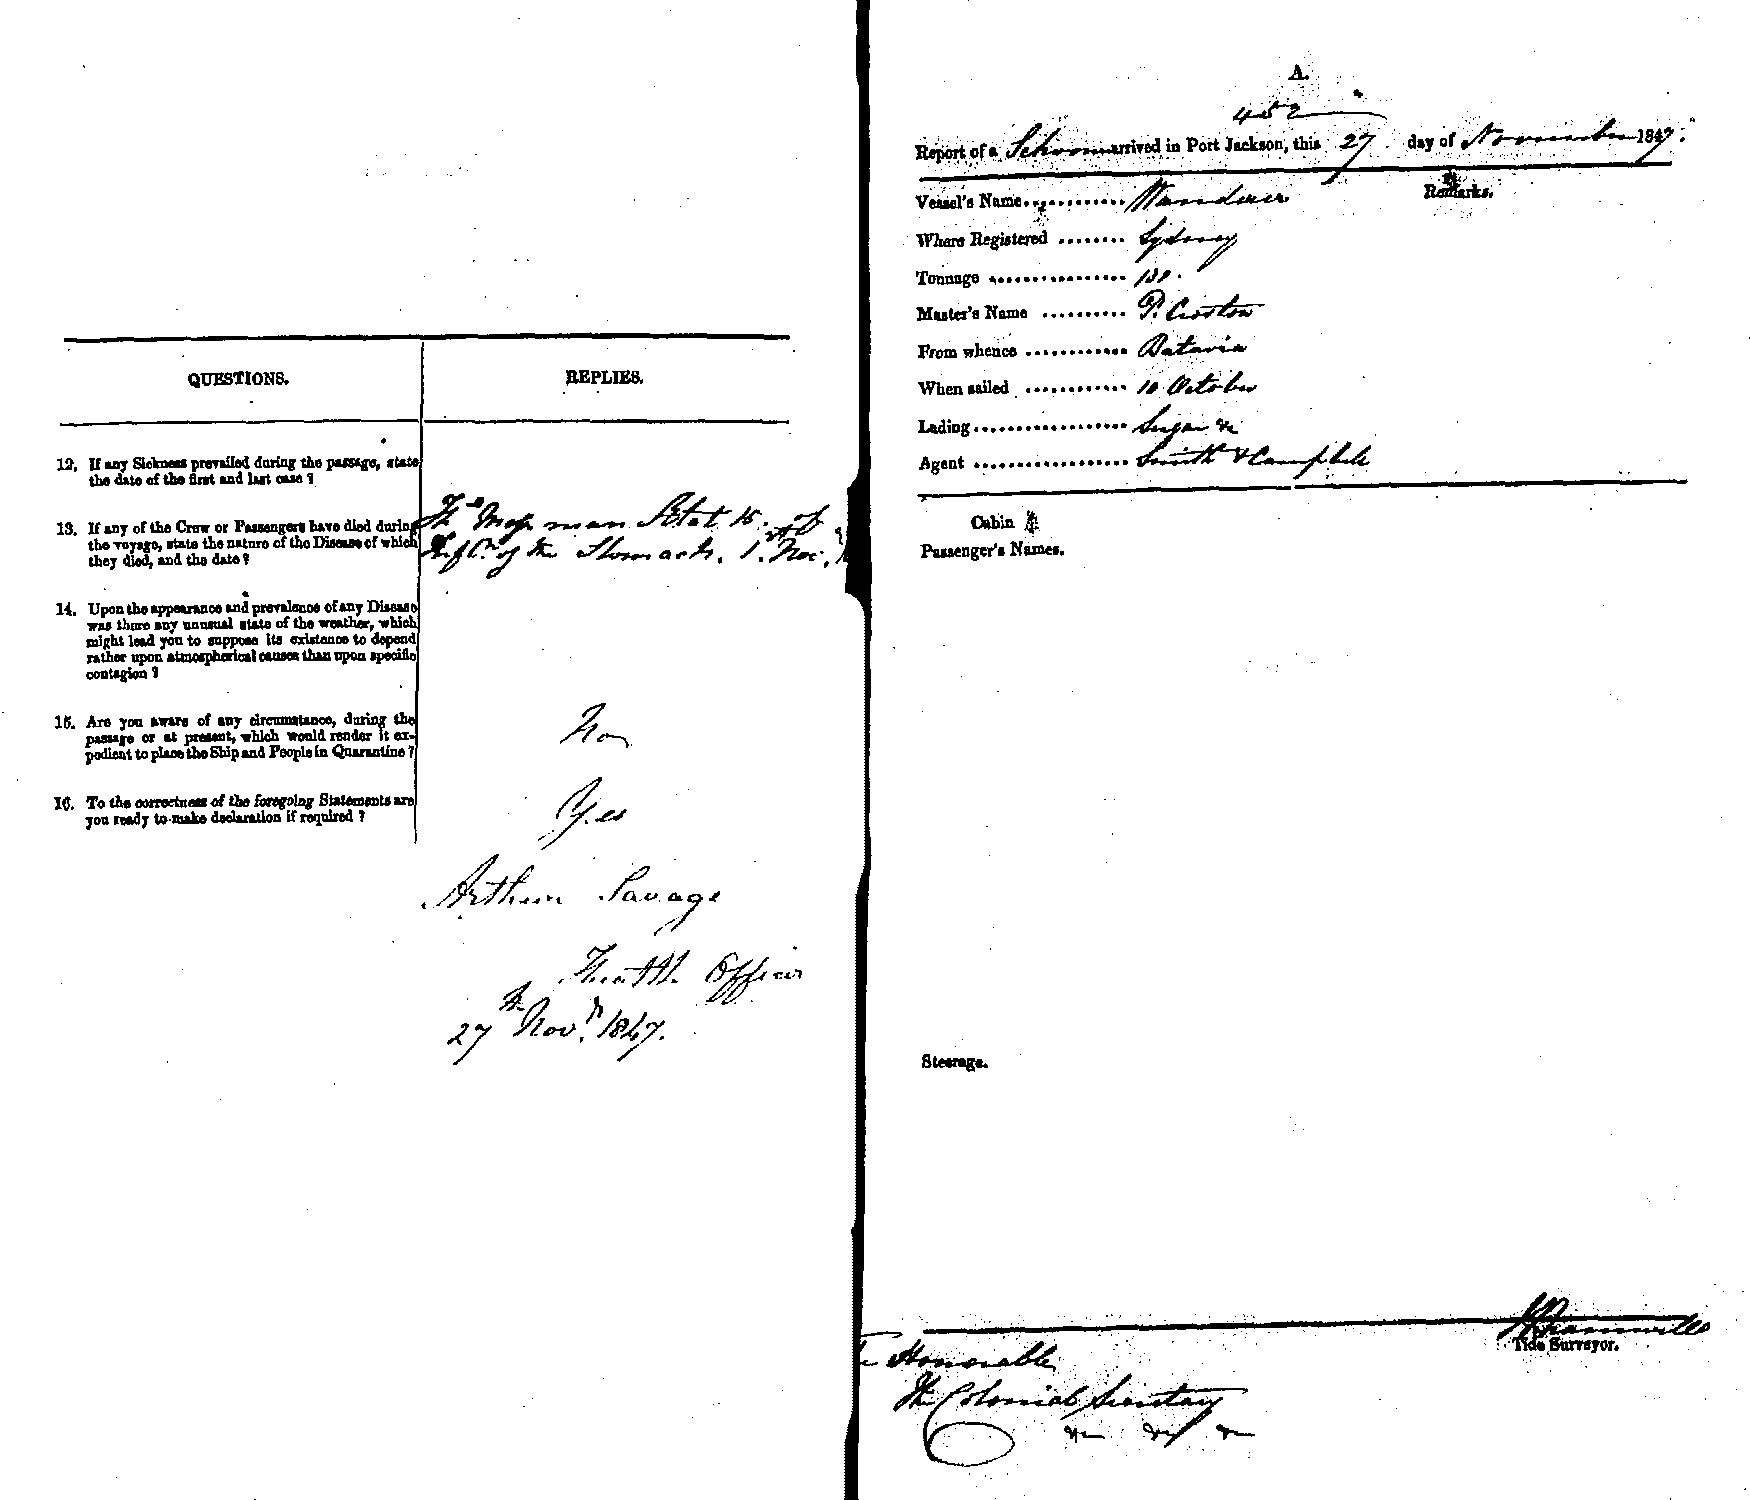 QUESTIONS. REPLIES.
12. If any Sickness prevailed during the passage, state
the date of the first and last case ?
13. If any of the Crew or Passengers have died during
the voyage, state the nature of the Disease of which
they died, and the date ?
The Mess man Ætat 15. of
Inf.n of the Stomach. 1.st Nov.
14. Upon the appearance and prevalence of any Disease
was there any unusual state of the weather, which
might lead you to suppose its existence to depend
rather upon atmospherical causes than upon specific
contagion ?
15. Are you aware of any circumstance, during the
passage or at present, which would render it ex-
pedient to place the Ship and People in Quarantine ?
No
16. To the correctness of the foregoing Statements are
you ready to make declaration if required ?
Yes
Arthur Savage
Health Officer
27th Novr. 1847.
A.
452
Report of a Schooner arrived in Port Jackson, this 27 day of November 1847.
Vessel's Name Wanderer
Remarks.
Where Registered Sydney
Tonnage
Master's Name P. Croston
From whence Batavia
When sailed 10 October
Lading Sugar &c
Agent Smith & Campbell
Cabin
Passenger's Names.
Steerage.
Tide Surveyor.
The Honorable
The Colonial Secretary
&c &c &c